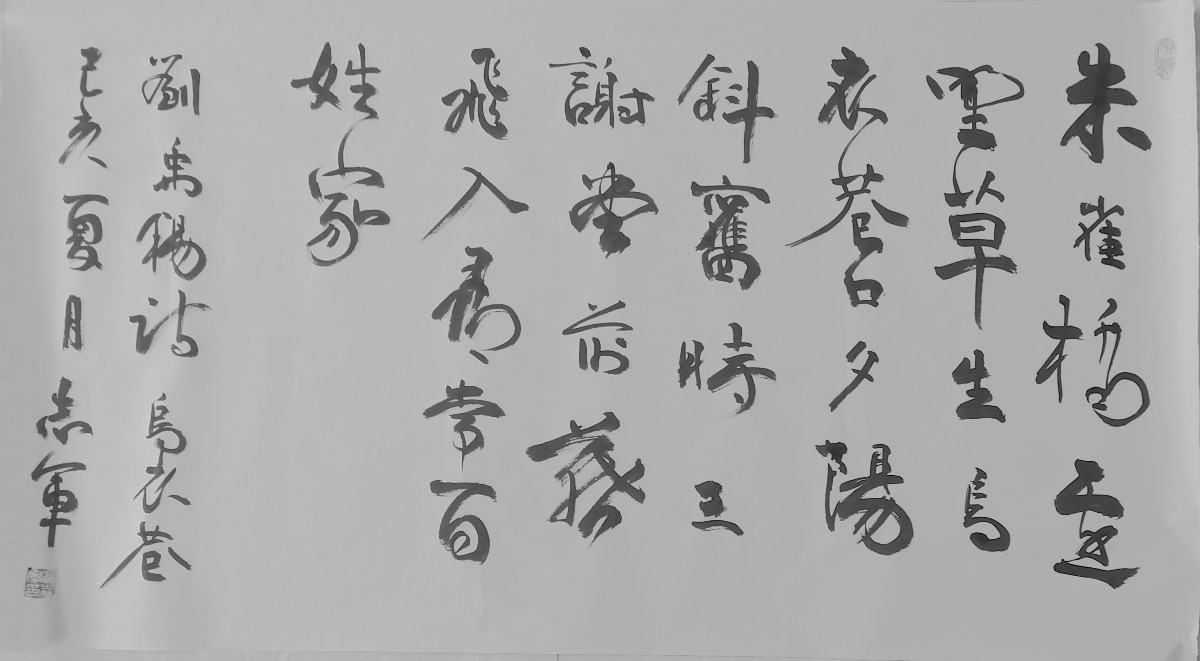 朱雀橋邊
野草生烏
衣巷口夕陽
斜舊時王
謝堂前燕
飛入尋常百
姓家
劉禹錫詩烏衣巷
己亥夏月志軍